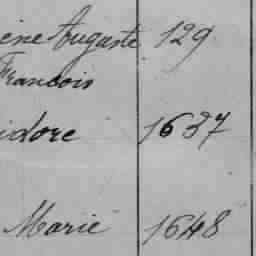 Auguste 129
Francois
idore 1637
Marie 1648